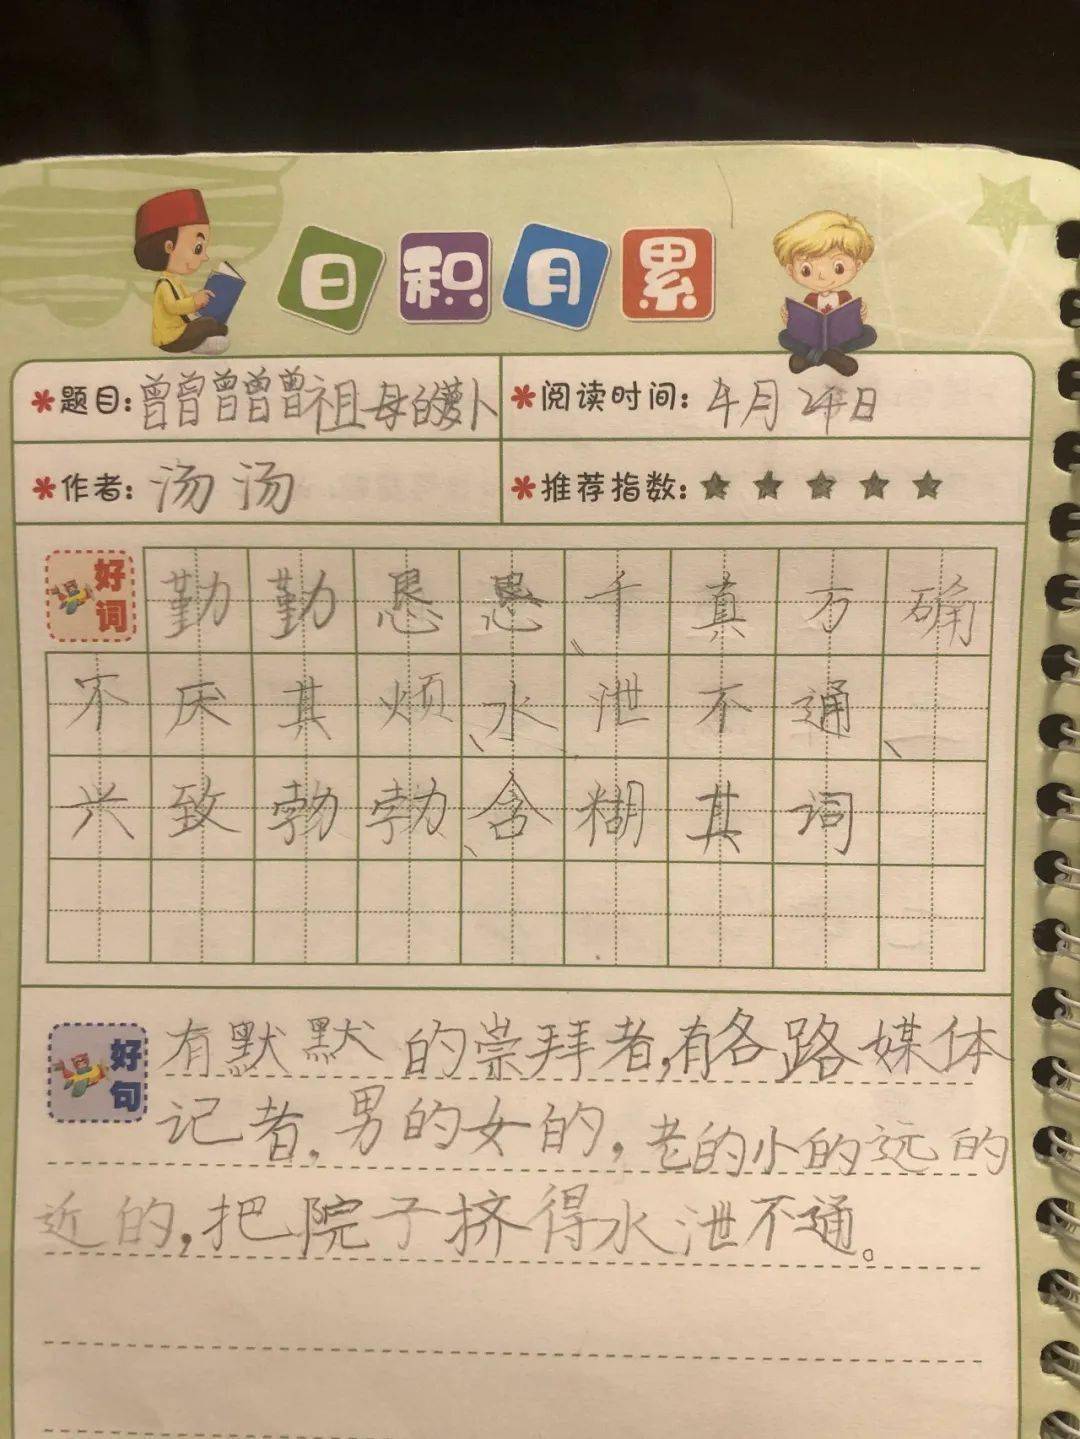 日积月累
题目:曾曾曾曾曾祖母的萝卜 阅读时间:4月24日
作者:汤汤 推荐指数:★★★★★
好词 勤勤恳恳、千真万确
不厌其烦、水泄不通、
兴致勃勃、含糊其词
好句 有默默的崇拜者,有各路媒体
记者,男的女的,老的小的远的
近的,把院子挤得水泄不通。